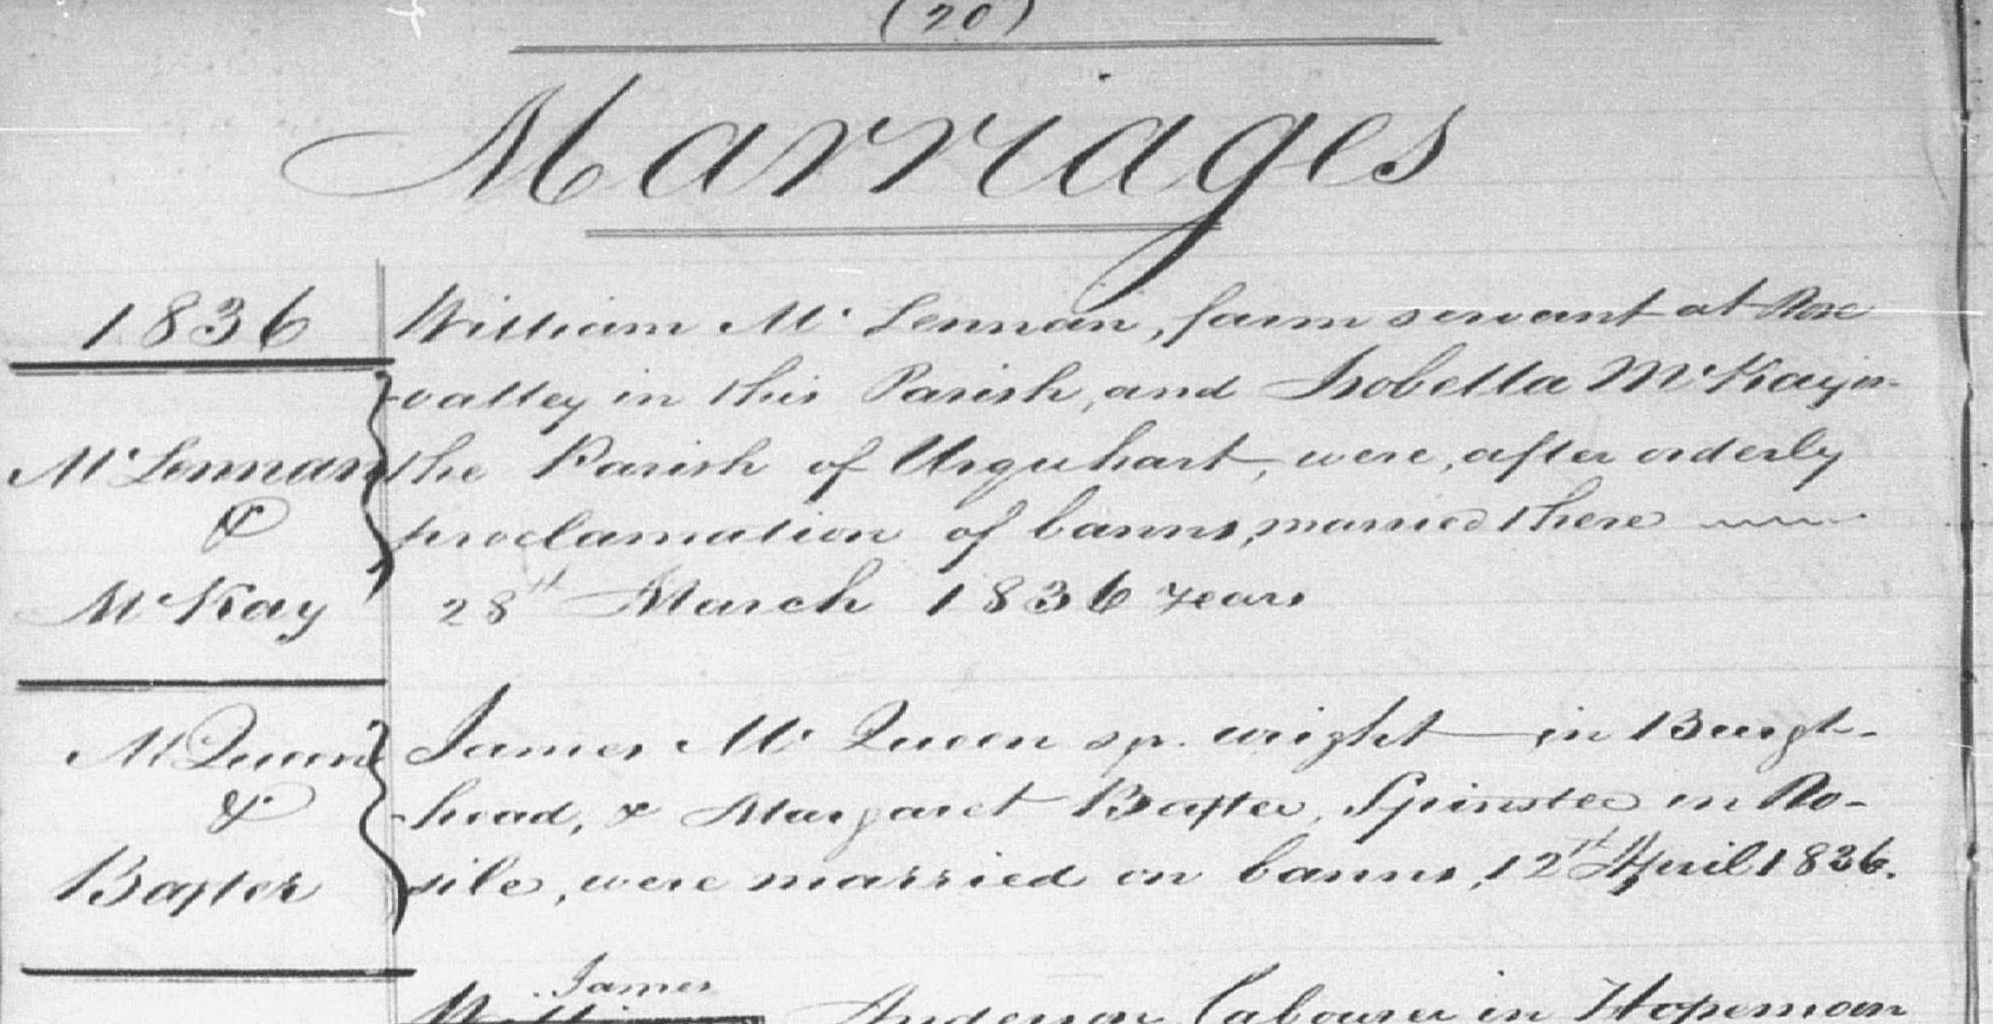 (20)
Marriages
1836
William Mc Lennan, farm servant at Rose
valley in this Parish, and Isobella McKay in
McLennan
the Parish of Urquhart, were, after orderly
&
proclamation of banns, married there
McKay
28th March 1836 years
McQueen
James Mc Queen sp. wright in Burgh-
&
head, & Margaret Baxter, Spinster in Ro-
Baxter
sile, were married on banns, 12th April 1836.
James
William Anderson Labourer in Hopeman